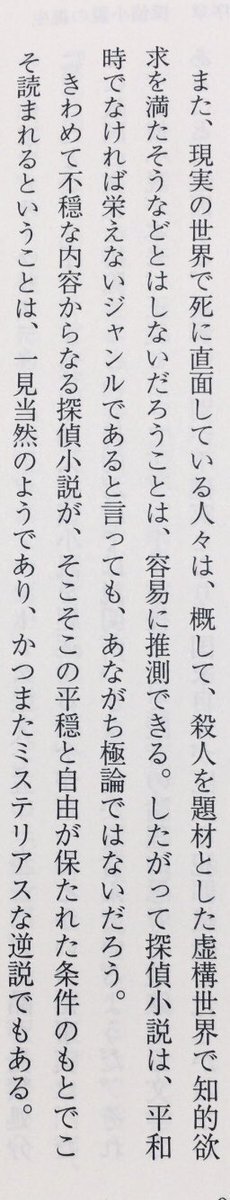 また、現実の世界で死に直面している人々は、概して、殺人を題材とした虚構世界で知的欲
求を満たそうなどとはしないだろうことは、容易に推測できる。したがって探偵小説は、平和
時でなければ栄えないジャンルであると言っても、あながち極論ではないだろう。
きわめて不穏な内容からなる探偵小説が、そこそこの平穏と自由が保たれた条件のもとでこ
そ読まれるということは、一見当然のようであり、かつまたミステリアスな逆説でもある。